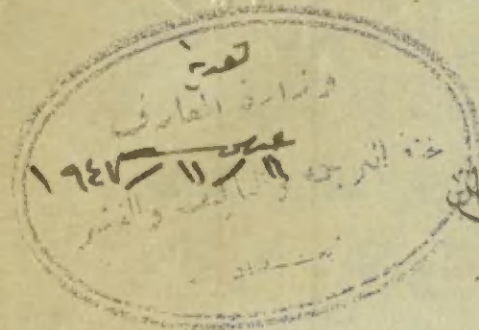 وزارة المعارف
١٩٤٧/١١/١٦
لجنة الترجمة والتأليف والنشر
بغداد